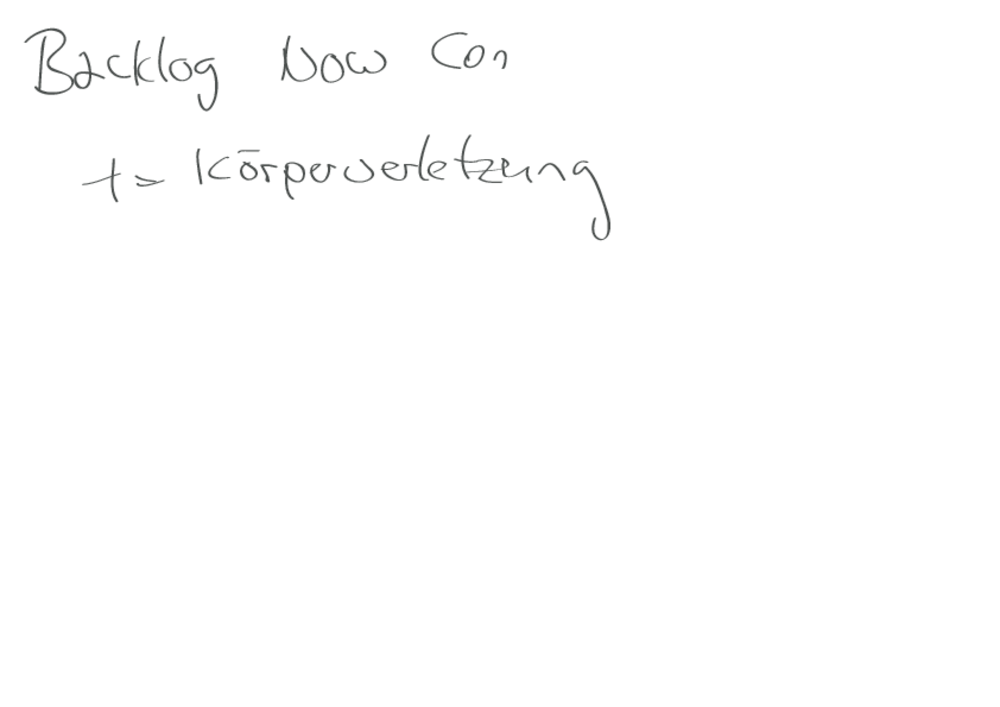 Backlog Now Con
t= Körperverletzung